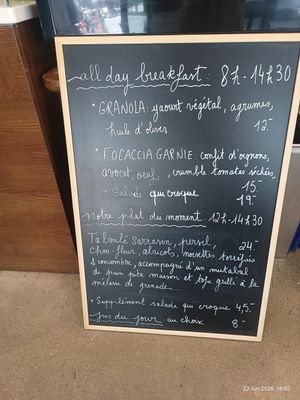 all day breakfast: 8h-14h30
• GRANOLA: yaourt végétal, agrumes,
huile d'olives. 12.-
• FOCACCIA GARNIE: confit d'oignons,
avocat, oeuf, crumble tomates séchées
15.-
+ Salade qui croque 19.-
notre plat du moment 12h-14h30
Taboulé Sarrasin, persil, 24.-
Chou-fleur, abricots, noisettes torréfiées
& concombre, accompagné d'un mutabal
de pain pita maison et tofu grillé à la
mélasse de grenade
• Supplément salade qui croque 4,5.-
Jus du jour au choix 8.-
23 Jun 2026, 14:02